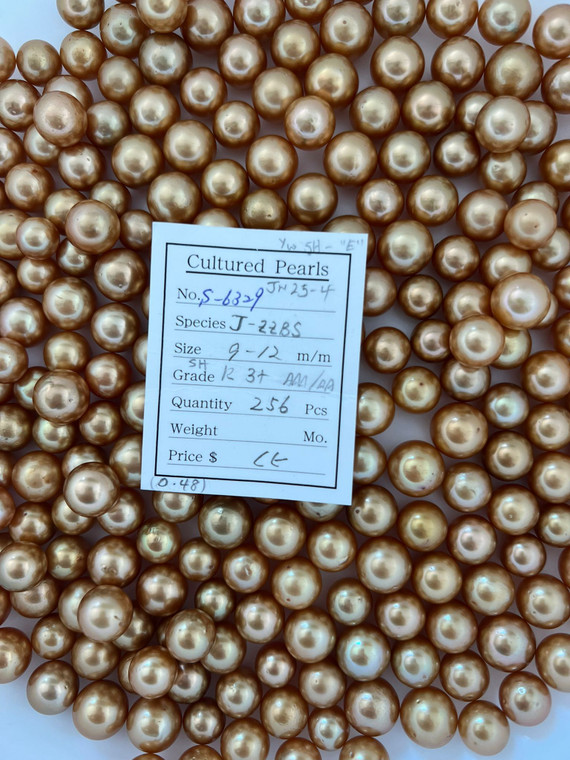 YW SH - "E"
Cultured Pearls
No. S-6329 JN25-4
Species J-ZZBS
Size 9-12 m/m
SH
Grade R 3+ AAA/AA
Quantity 256 Pcs
Weight Mo.
Price $
(0.48)